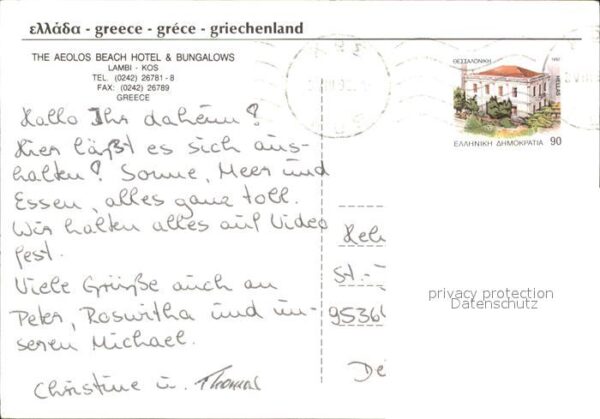 ελλάδα - greece - gréce - griechenland
THE AEOLOS BEACH HOTEL & BUNGALOWS
LAMBI - KOS
TEL. (0242) 26781 - 8
FAX: (0242) 26789
GREECE
ΘΕΣΣΑΛΟΝΙΚΗ 1992
HELLAS
ΕΛΛΗΝΙΚΗ ΔΗΜΟΚΡΑΤΙΑ 90
Hallo Ihr daheim!
Hier läßt es sich aus-
halten! Sonne, Meer und
Essen, alles ganz toll.
Wir halten alles auf Video
fest.
Viele Grüße auch an
Peter, Roswitha und un-
seren Michael.
Christine u. Thomas
St.-
9536
privacy protection
Datenschutz